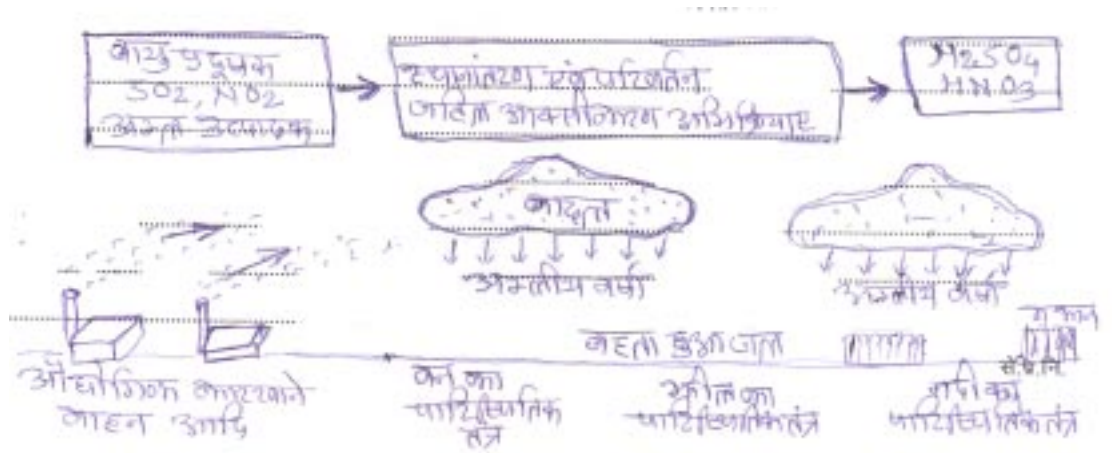 वायु प्रदूषक
SO2, NO2
अम्ल उत्पादक
स्थानांतरण एवं परिवर्तन
जटिल आक्सीकरण अभिक्रियाए
H2SO4
HNO3
बादल
अम्लीय वर्षा
अम्लीय वर्षा
बहता हुआ जल
मकान
औद्योगिक कारखाने
वाहन आदि
वन का
पारिस्थितिक
तंत्र
झील का
पारिस्थितिक तंत्र
नदी का
पारिस्थितिक तंत्र